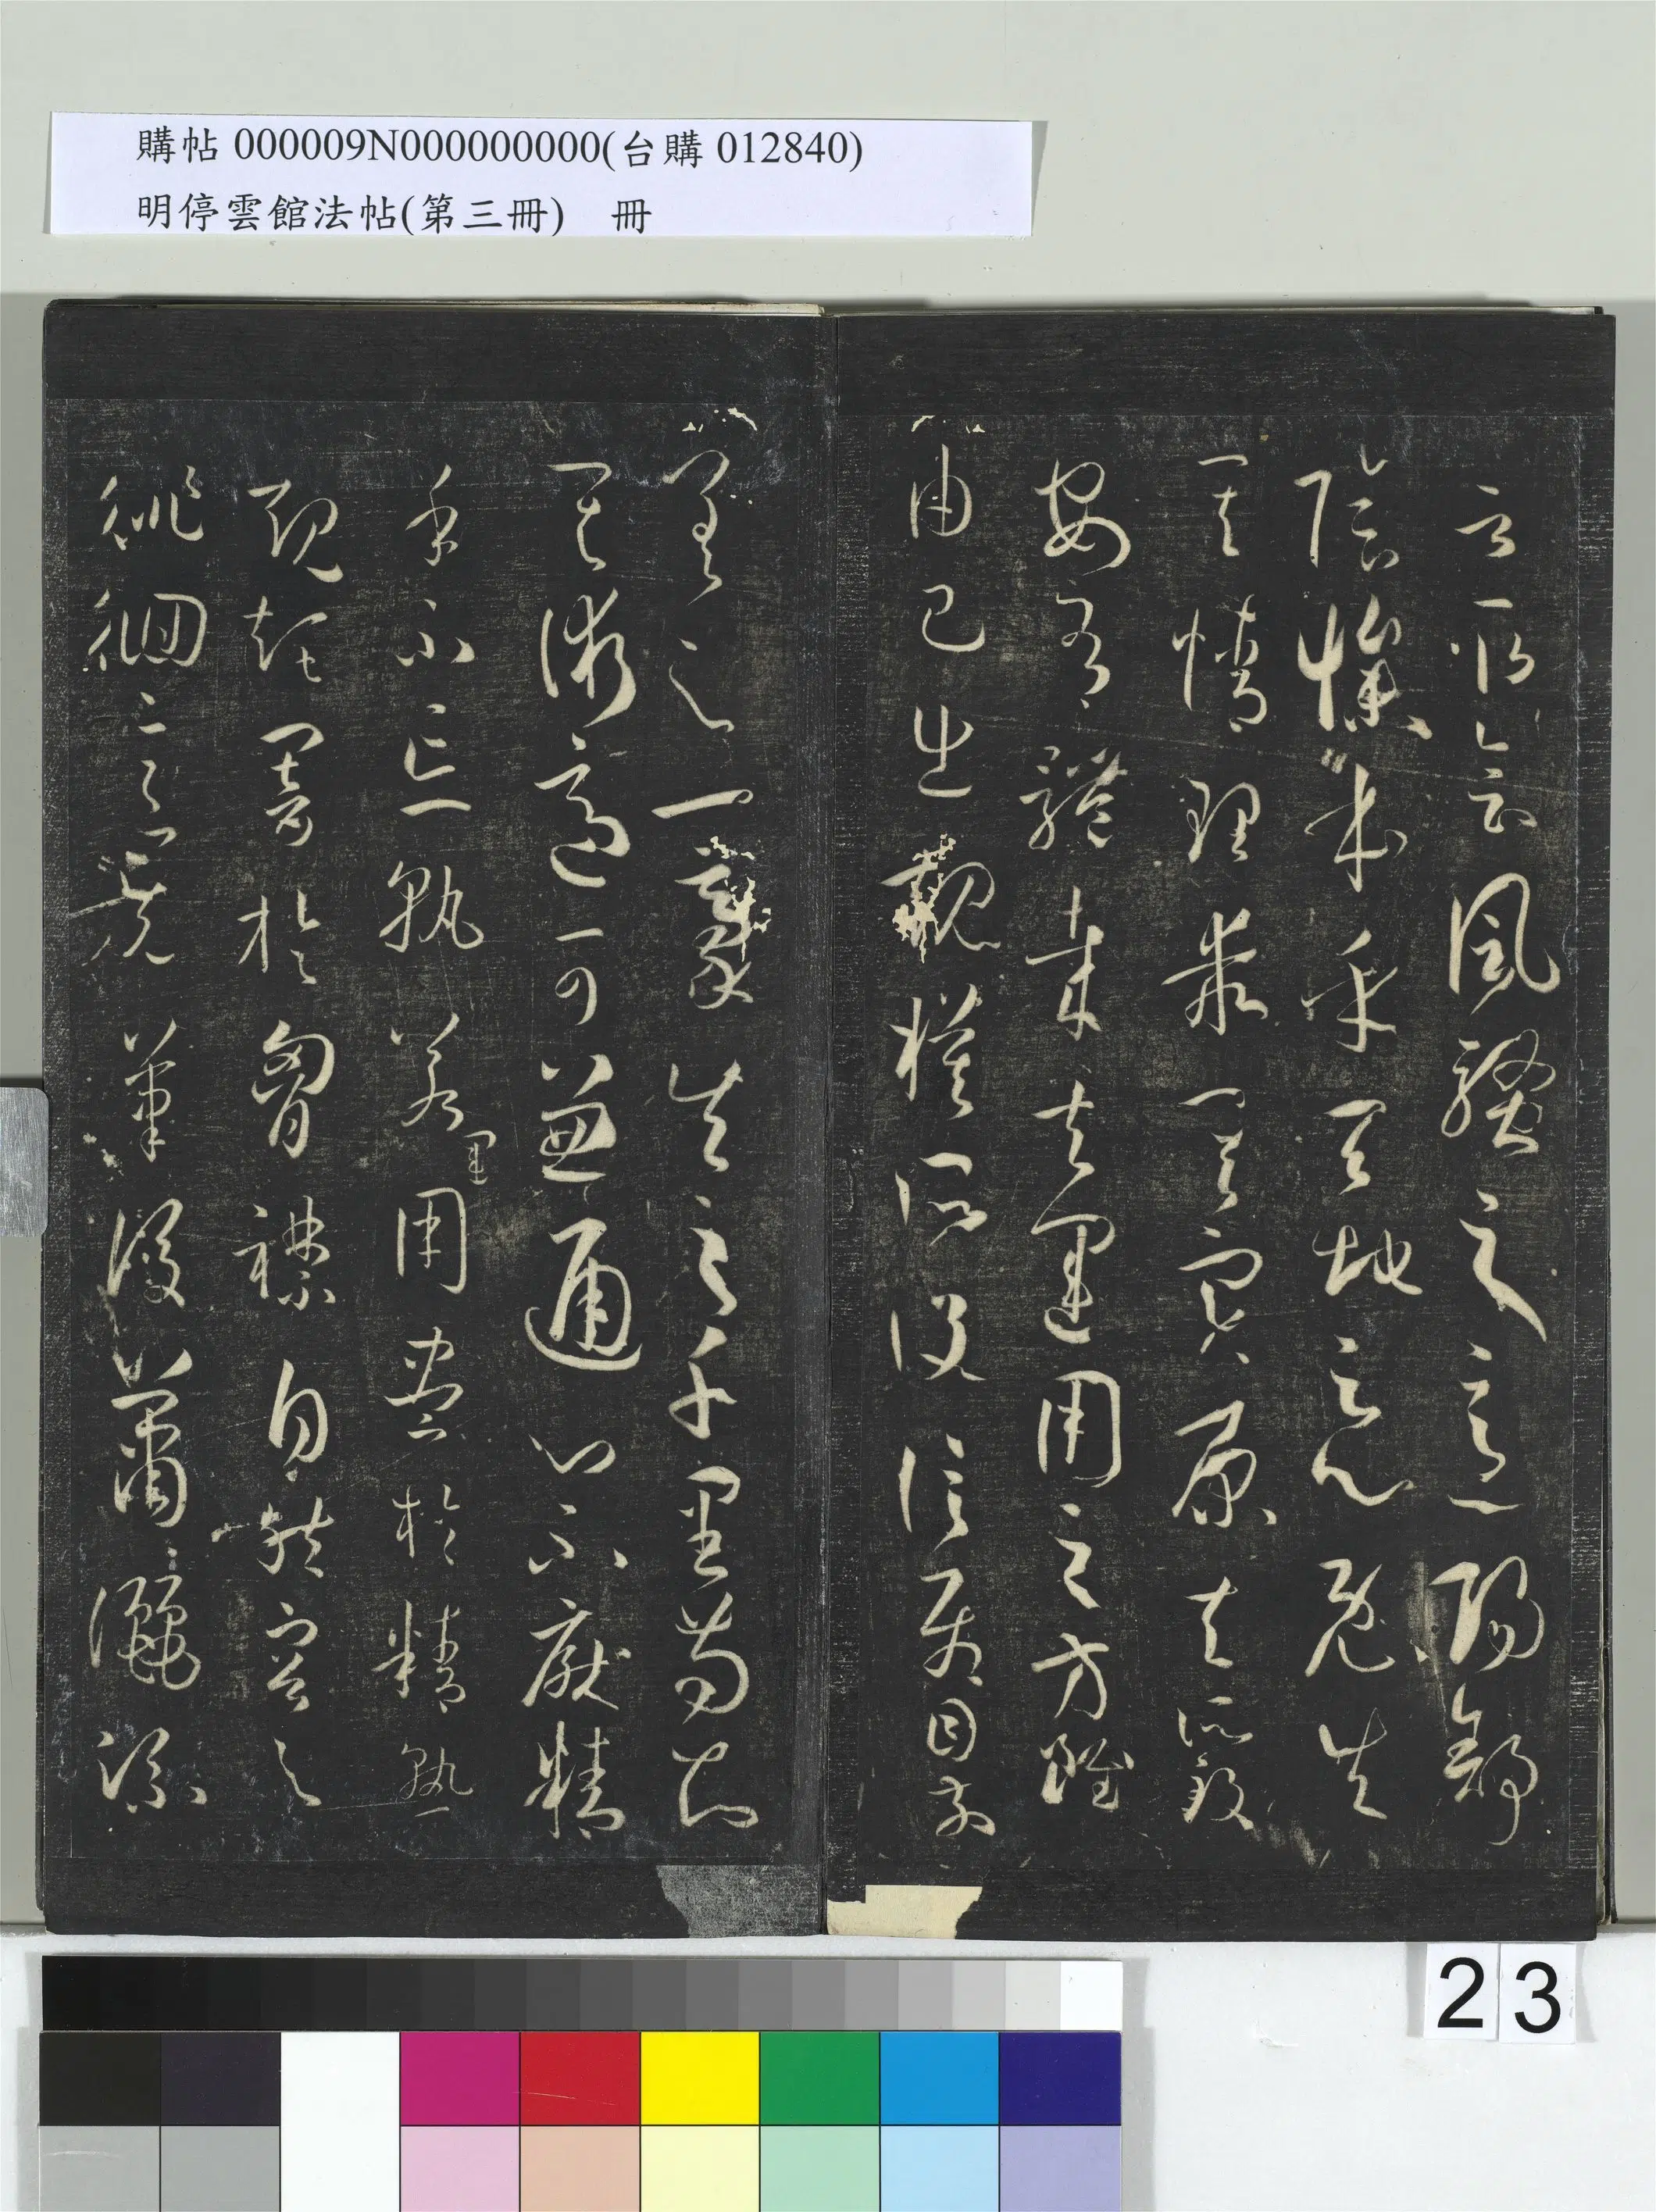 購帖 000009N000000000(台購 012840)
明停雲館法帖(第三冊) 冊
言取會風騷之意陽舒
陰慘本乎天地之心既失
其情理乖其實原夫所致
安有體哉夫運用之方雖
由己出規模所設信屬目前
差之一豪失之千里苟知
其術適可兼通心不厭精
手不忘熟若運用盡於精熟
規矩闇於胸襟自然容與
徘徊意先筆後蕭灑流
23